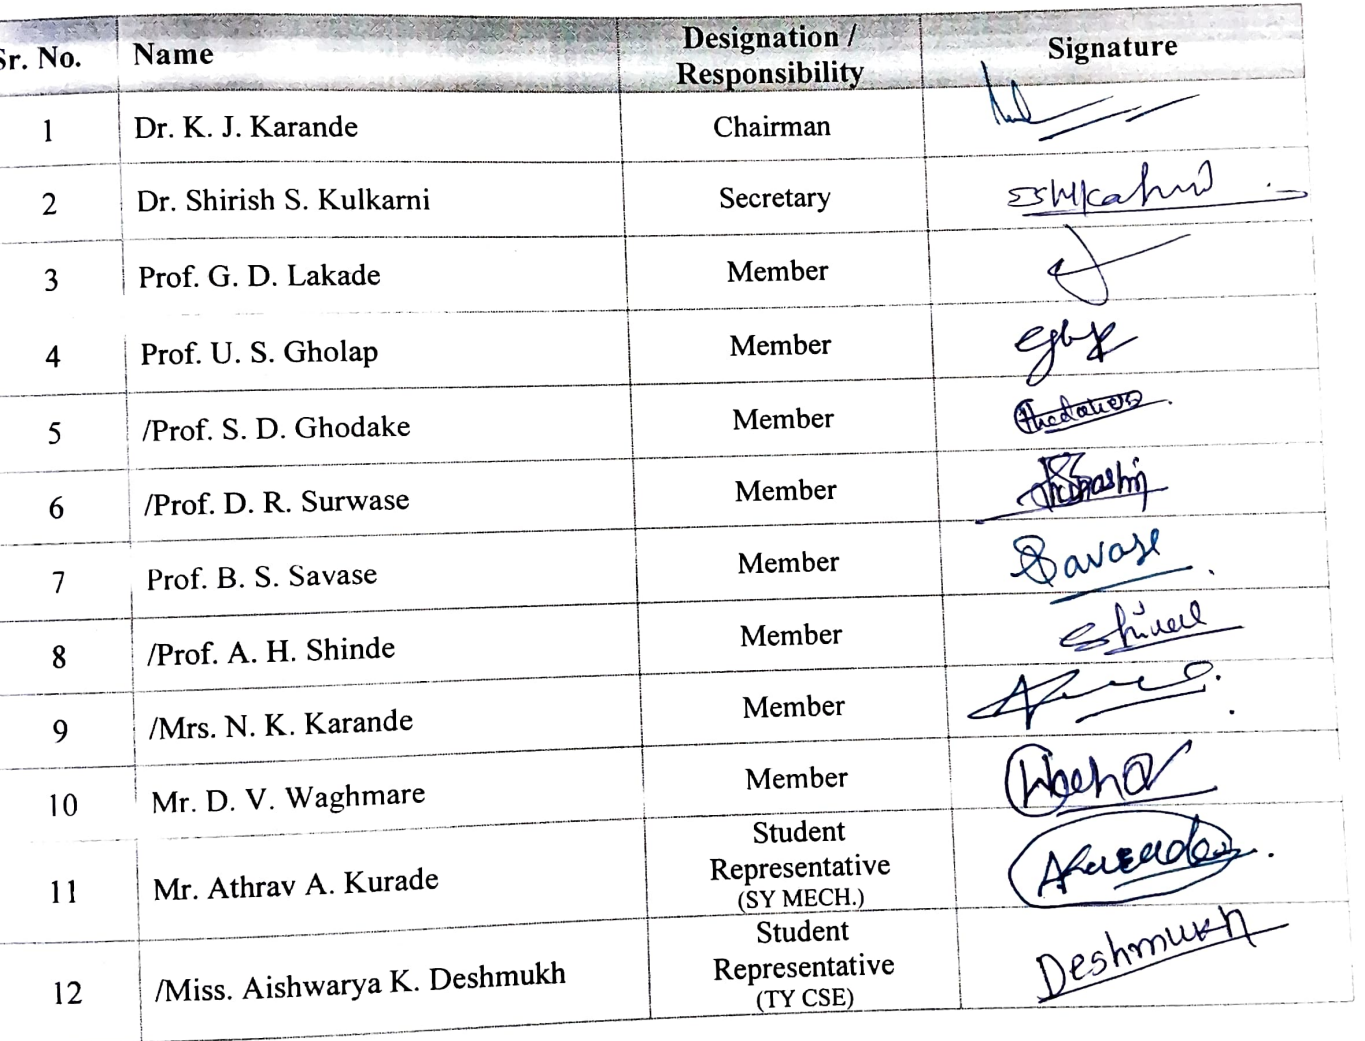 Sr. No. Name Designation / Responsibility Signature
1 Dr. K. J. Karande Chairman
2 Dr. Shirish S. Kulkarni Secretary
3 Prof. G. D. Lakade Member
4 Prof. U. S. Gholap Member
5 /Prof. S. D. Ghodake Member
6 /Prof. D. R. Surwase Member
7 Prof. B. S. Savase Member Savase
8 /Prof. A. H. Shinde Member
9 /Mrs. N. K. Karande Member
10 Mr. D. V. Waghmare Member
11 Mr. Athrav A. Kurade Student Representative (SY MECH.)
12 /Miss. Aishwarya K. Deshmukh Student Representative (TY CSE) Deshmukh